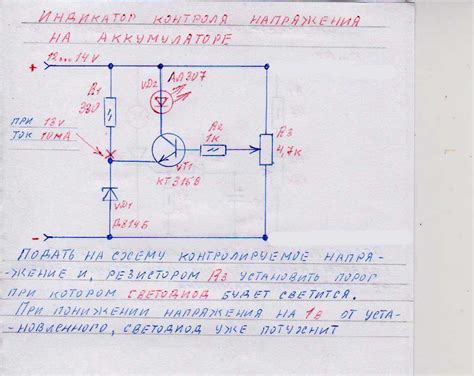 ИНДИКАТОР КОНТРОЛЯ НАПРЯЖЕНИЯ
НА АККУМУЛАТОРЕ
+ 12...14V
R1
330
АЛ307
VD2
ПРИ 13V
ТОК 10МА
R2
1К
R3
4,7К
VT1
КТ315В
VD1
Д814Б
-
ПОДАТЬ НА СХЕМУ КОНТРОЛИРУЕМОЕ НАПРЯ-
-ЖЕНИЕ И, РЕЗИСТОРОМ R3 УСТАНОВИТЬ ПОРОГ
ПРИ КОТОРОМ СВЕТОДИОД БУДЕТ СВЕТИТСЯ.
ПРИ ПОНИЖЕНИИ НАПРЯЖЕНИЯ НА 1В ОТ УСТА-
-НОВЛЕННОГО, СВЕТОДИОД УЖЕ ПОТУХНИТ